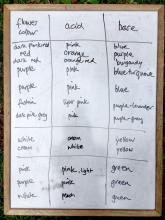 flower colour acid base
dark purple/red pink blue
red orange purple
dark red orange/red burgundy
purple pink blue/turquoise
purple pink blue
fuchsia light pink purple-lavender
dark pink pink purple-grey
white cream yellow
cream white yellow
pink pink, light green
purple pink green
white green